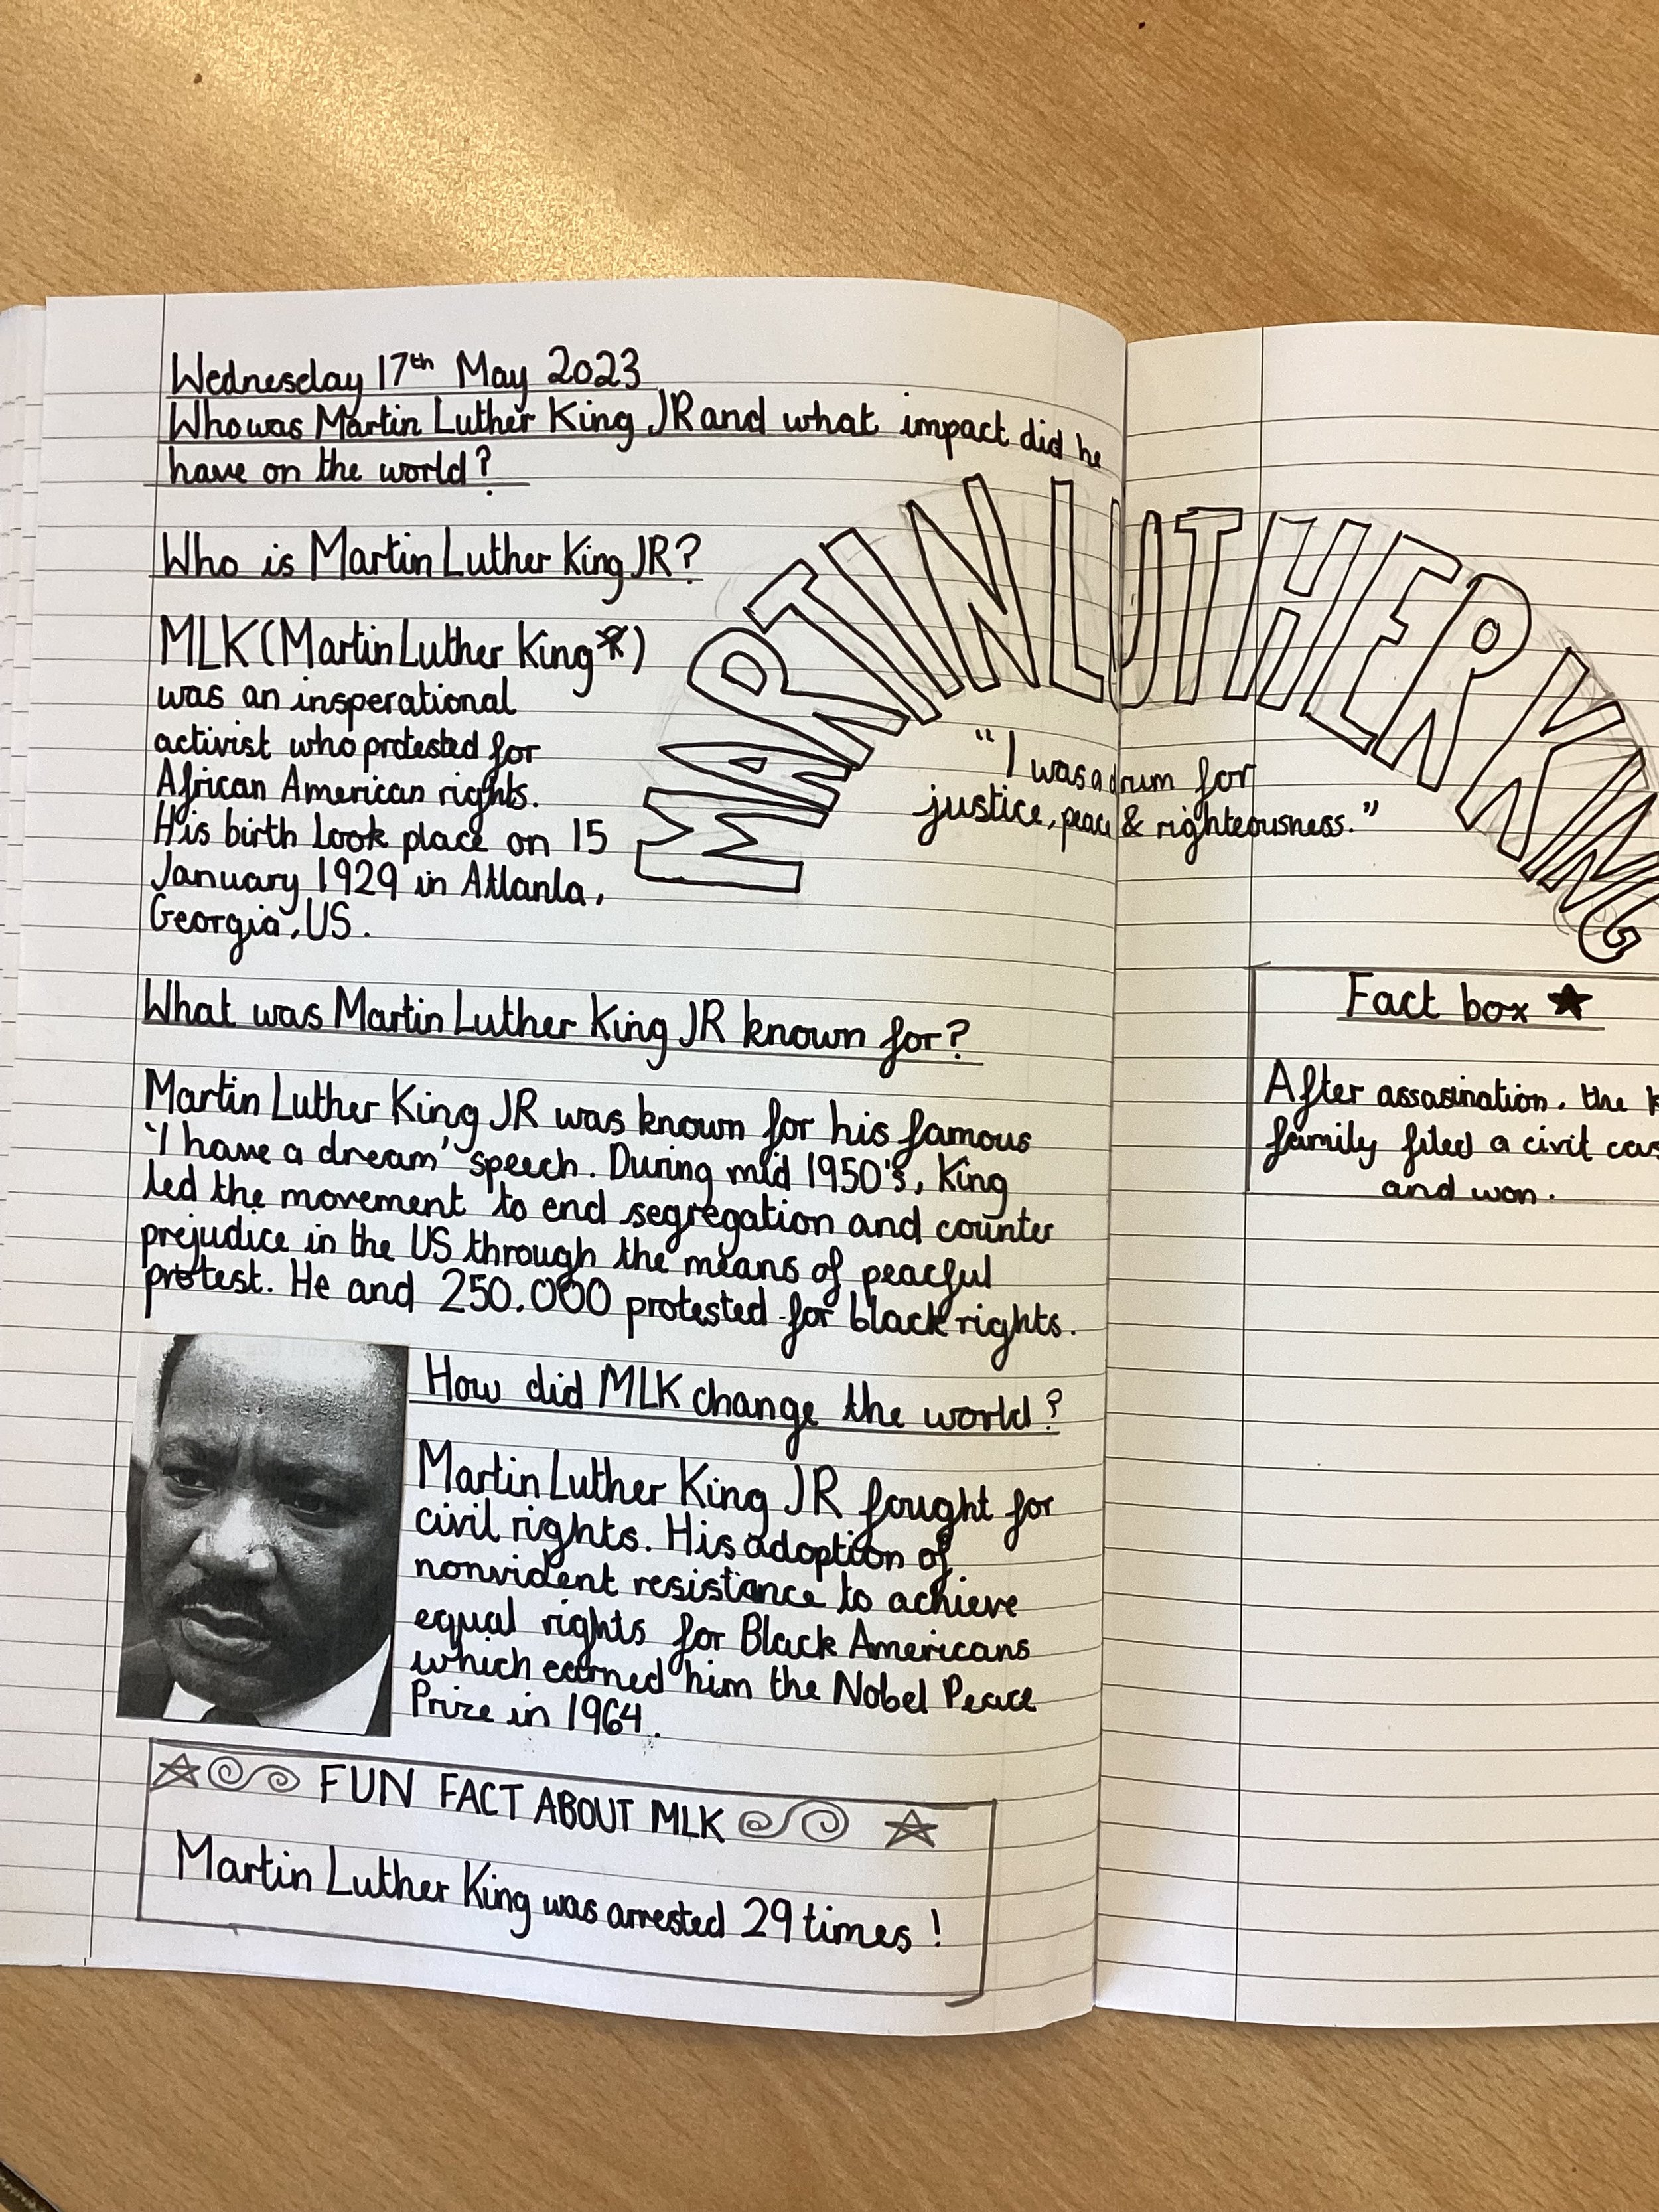 Wednesday 17th May 2023
Who was Martin Luther King JR and what impact did he
have on the world?
MARTIN LUTHER KING
Who is Martin Luther King JR?
MLK (Martin Luther King)
was an insperational
activist who protested for
African American rights.
His birth took place on 15
January 1929 in Atlanta,
Georgia, US.
"I was a drum for
justice, peace & righteousness."
What was Martin Luther King JR known for?
Martin Luther King JR was known for his famous
"I have a dream" speech. During mid 1950's, King
led the movement to end segregation and counter
prejudice in the US through the means of peacful
protest. He and 250.000 protested for black rights.
How did MLK change the world?
Martin Luther King JR fought for
civil rights. His adoption of
nonviolent resistance to achieve
equal rights for Black Americans
which earned him the Nobel Peace
Prize in 1964.
FUN FACT ABOUT MLK
Martin Luther King was arrested 29 times!
Fact box
After assasination. the
family filed a civil cas
and won.